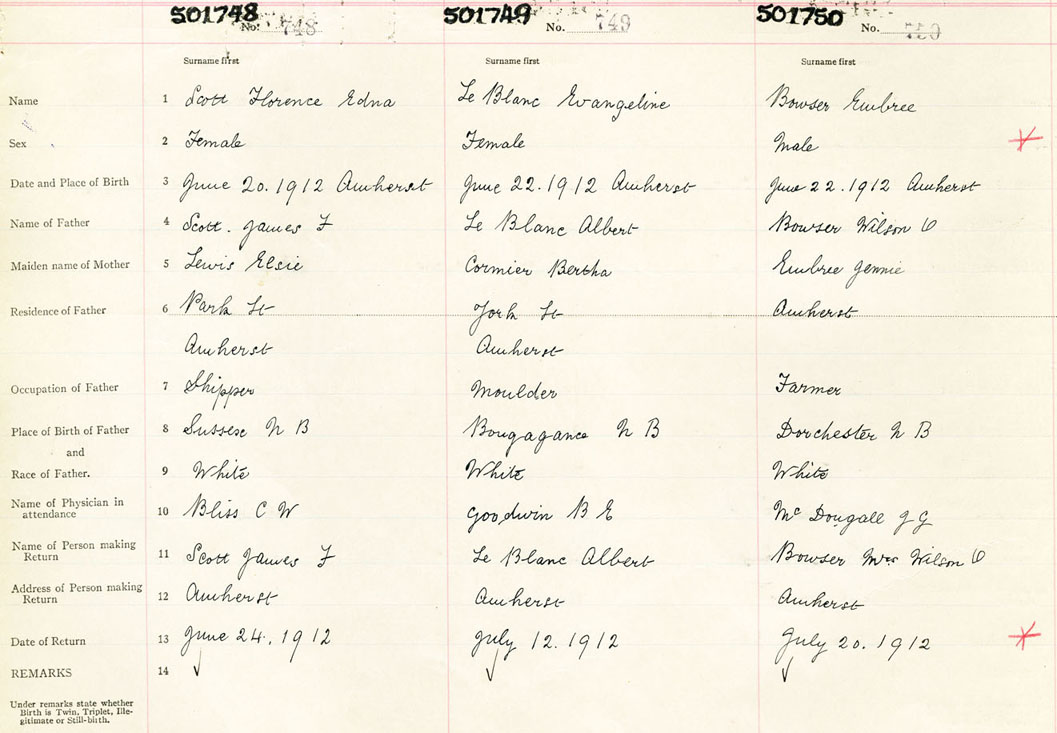 501748 501749 501750
No. 748 No. 749 No. 750
Surname first Surname first Surname first
Name 1 Scott Florence Edna Le Blanc Evangeline Bowser Embree
Sex 2 Female Female Male
Date and Place of Birth 3 June 20. 1912 Amherst June 22. 1912 Amherst June 22. 1912 Amherst
Name of Father 4 Scott. James F Le Blanc Albert Bowser Wilson O
Maiden name of Mother 5 Lewis Elsie Cormier Bertha Embree Jennie
Residence of Father 6 Park St York St Amherst
Amherst Amherst
Occupation of Father 7 Shipper Moulder Farmer
Place of Birth of Father 8 Sussex N B Bougagance N B Dorchester N B
and
Race of Father. 9 White White White
Name of Physician in
attendance 10 Bliss C W Goodwin B E Mc Dougall J G
Name of Person making
Return 11 Scott James F Le Blanc Albert Bowser Mrs Wilson O
Address of Person making
Return 12 Amherst Amherst Amherst
Date of Return 13 June 24. 1912 July 12. 1912 July 20. 1912
REMARKS 14
Under remarks state whether
Birth is Twin, Triplet, Ille-
gitimate or Still-birth.